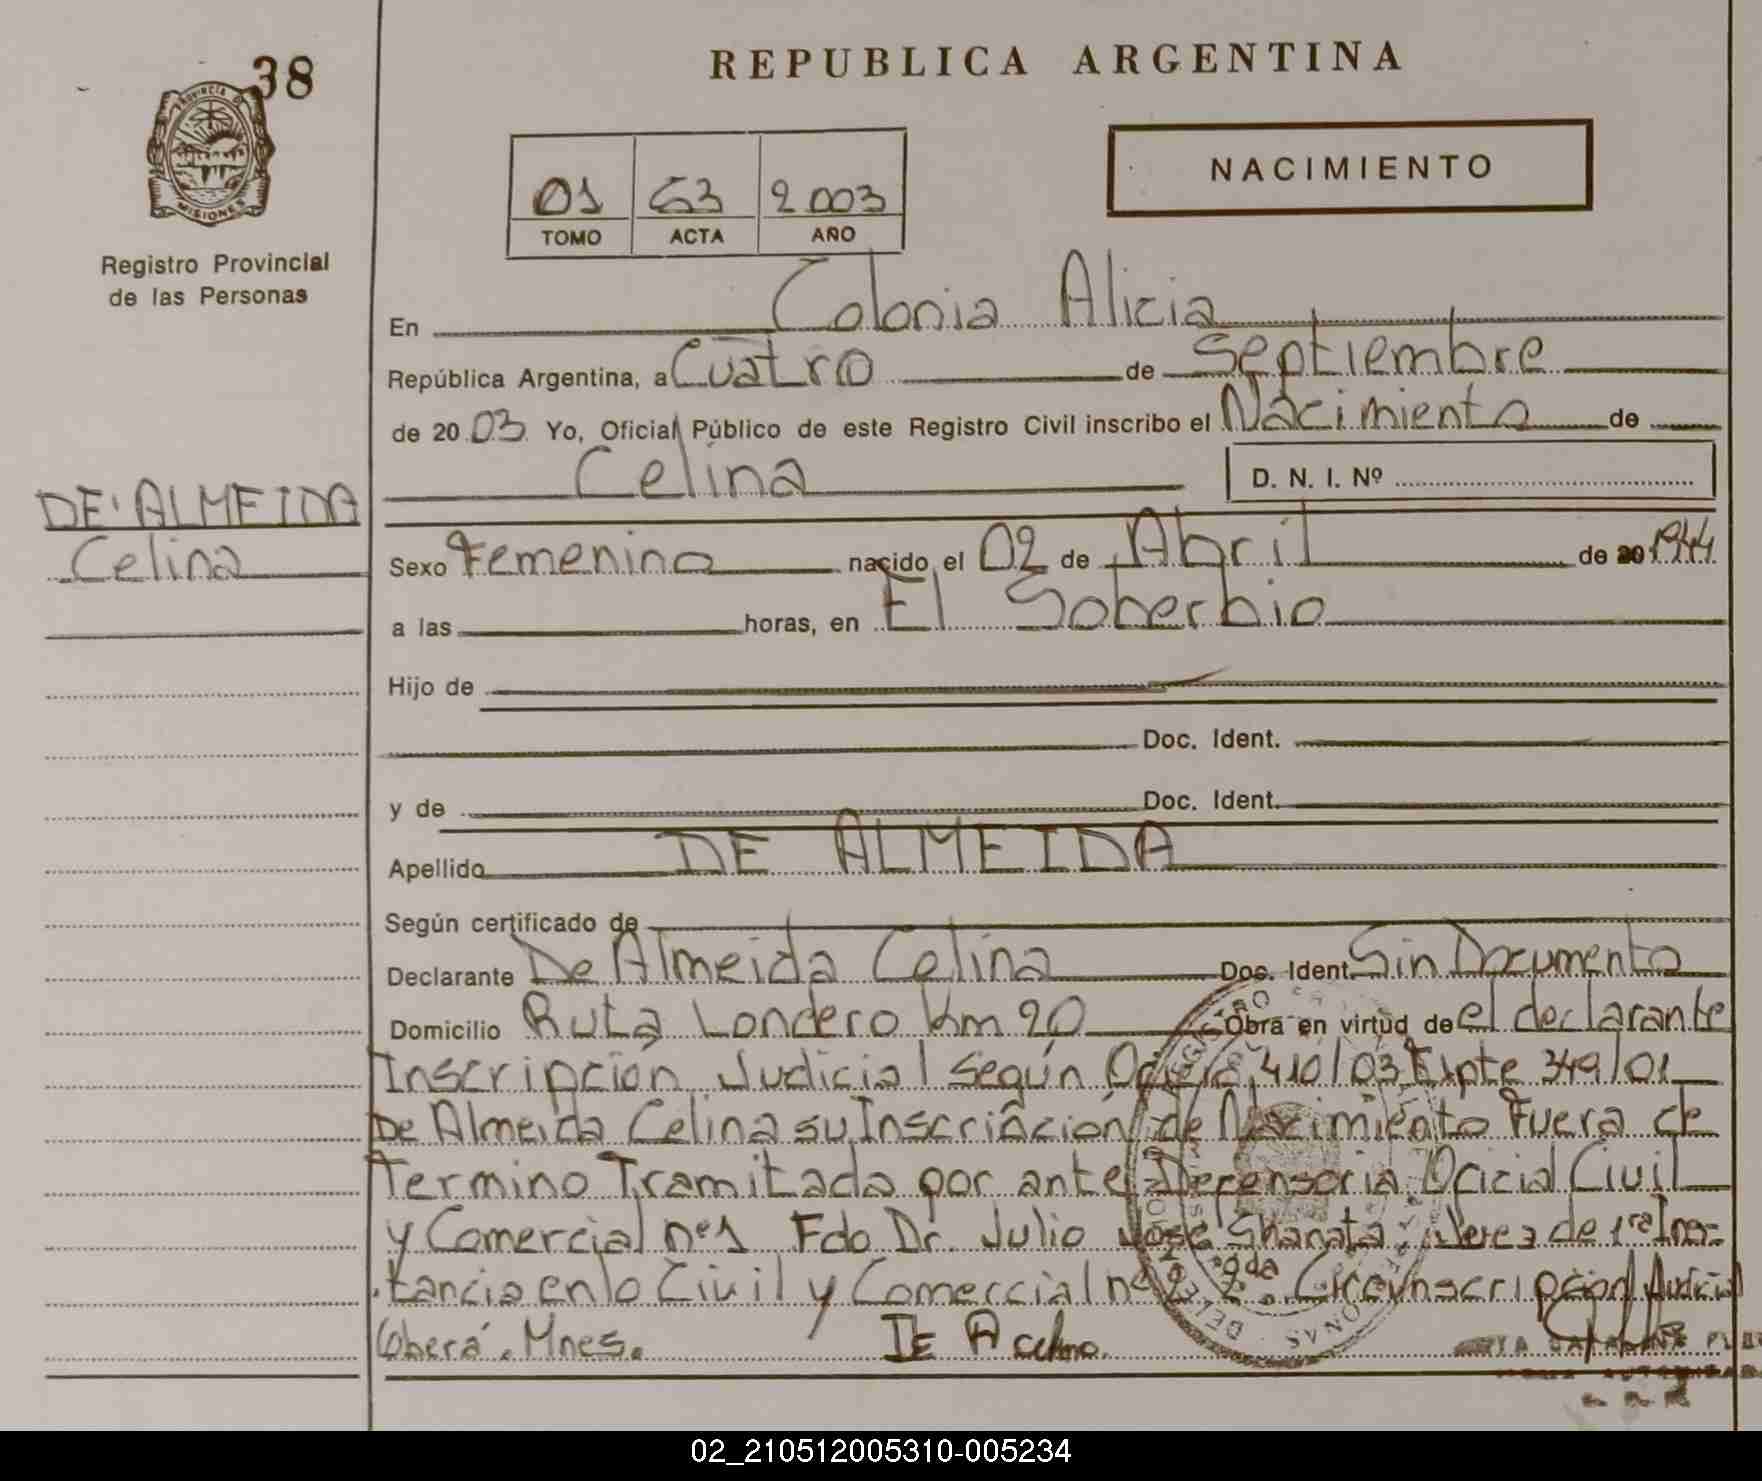 38
REPUBLICA ARGENTINA
PROVINCIA DE
MISIONES
Registro Provincial
de las Personas
NACIMIENTO
01 63 2003
TOMO ACTA AÑO
En Colonia Alicia
República Argentina, a Cuatro de Septiembre
de 2003 Yo, Oficial Público de este Registro Civil inscribo el Nacimiento de
Celina D. N. I. Nº
DE ALMEIDA
Celina
Sexo Femenino nacido el 02 de Abril de 20 1944
a las horas, en El Soberbio
Hijo de
Doc. Ident.
y de Doc. Ident.
Apellido DE ALMEIDA
Según certificado de
Declarante De Almeida Celina Doc. Ident. Sin Documento
Domicilio Ruta Londero Km 20 Obra en virtud de el declarante
Inscripción Judicial según Oficio 410/03 Expte 349/01
De Almeida Celina su Inscripción de Nacimiento Fuera de
Termino Tramitada por ante Defensoria Oficial Civil
y Comercial nº1 Fdo Dr. Julio José de 1ra Ins-
tancia en lo Civil y Comercial nº 2 2da Circunscripción Judicial
Oberá. Mnes.
02_210512005310-005234